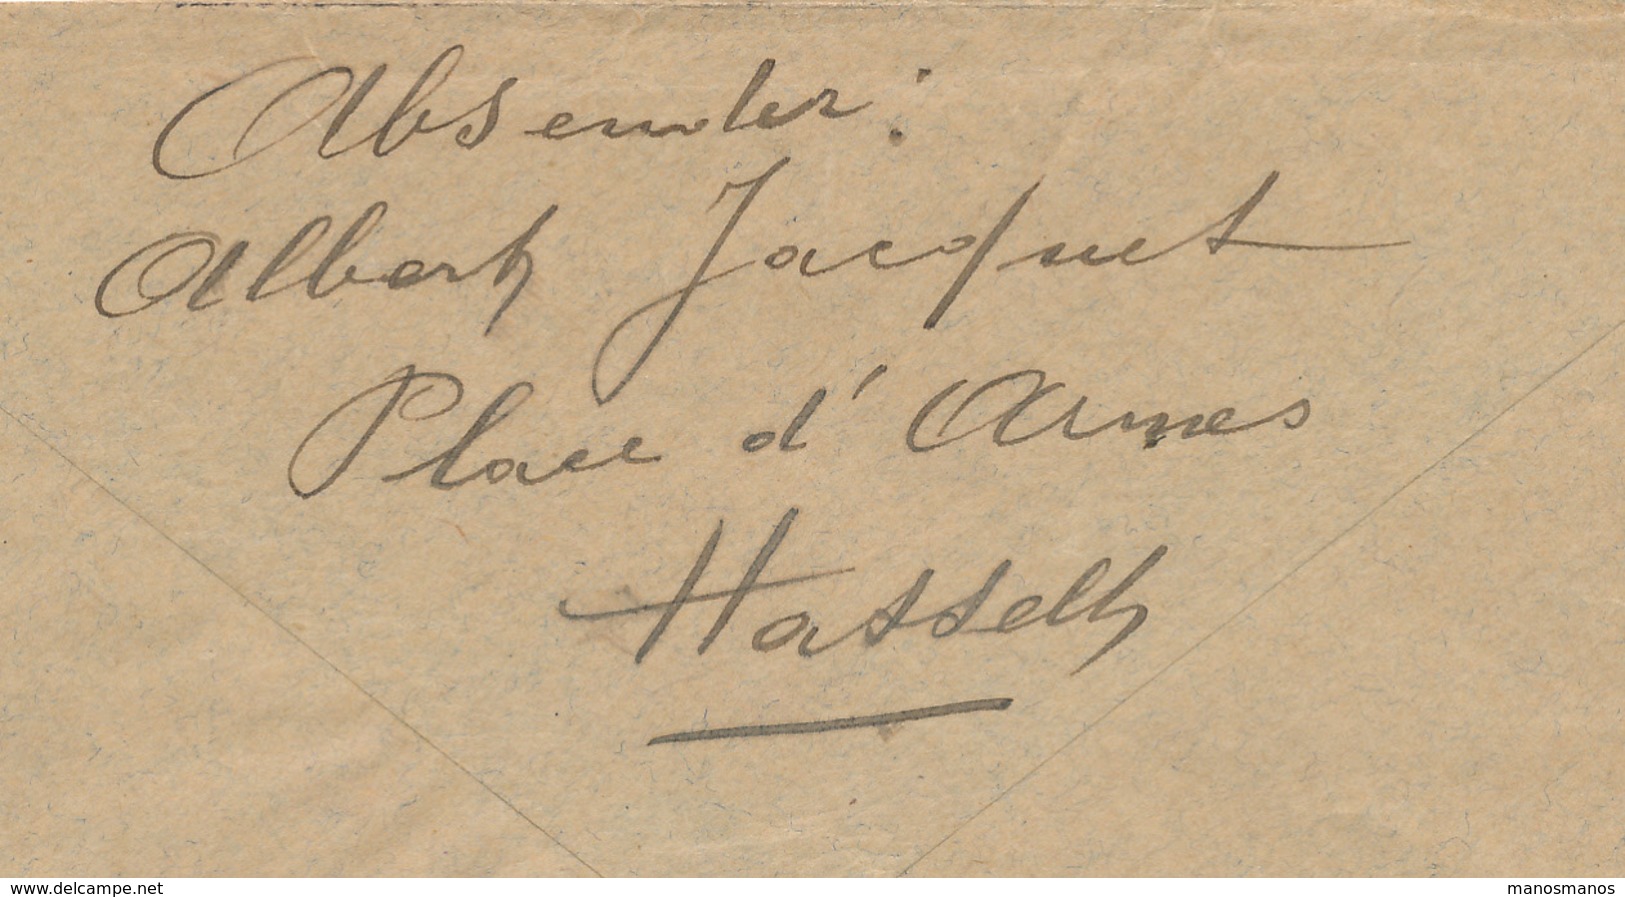 Absender:
Albert Jacquet
Place d'Armes
Hasselt
www.delcampe.net
manosmanos